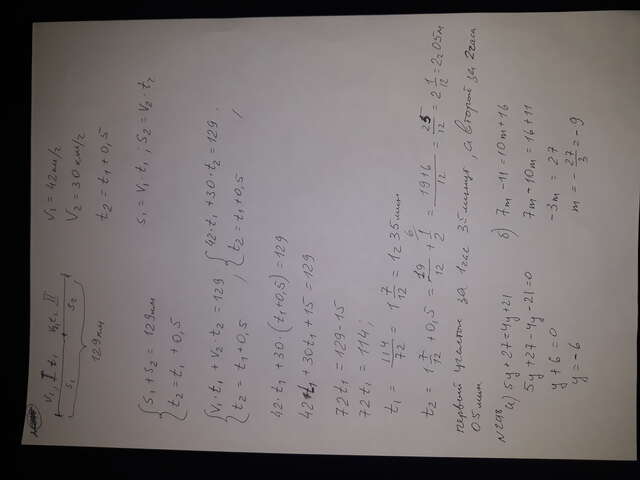 V₁ I t₁ II
S₁ S₂
129км
V₁ = 42 км/г
V₂ = 30 км/г
t₂ = t₁ + 0,5
{ S₁ + S₂ = 129км
t₂ = t₁ + 0,5
S₁ = V₁ · t₁ ; S₂ = V₂ · t₂
{ V₁ · t₁ + V₂ · t₂ = 129
t₂ = t₁ + 0,5 ,
{ 42 · t₁ + 30 · t₂ = 129
t₂ = t₁ + 0,5 ,
42 · t₁ + 30 · (t₁ + 0,5) = 129
42 t₁ + 30 t₁ + 15 = 129
72 t₁ = 129 - 15
72 t₁ = 114 ;
t₁ = 114/72 = 1 7/12 = 1г 35 мин
t₂ = 1 7/12 + 0,5 = 19/12 + 1/2 = 19+6/12 = 25/12 = 2 1/12 = 2г 05м
первый участок за 1час 35минут, а второй за 2час
05 мин
N298
а) 5y + 27 = 4y + 21
5y + 27 - 4y - 21 = 0
y + 6 = 0
y = -6
б) 7m - 11 = 10m + 16
7m - 10m = 16 + 11
-3m = 27
m = - 27/3 = -9